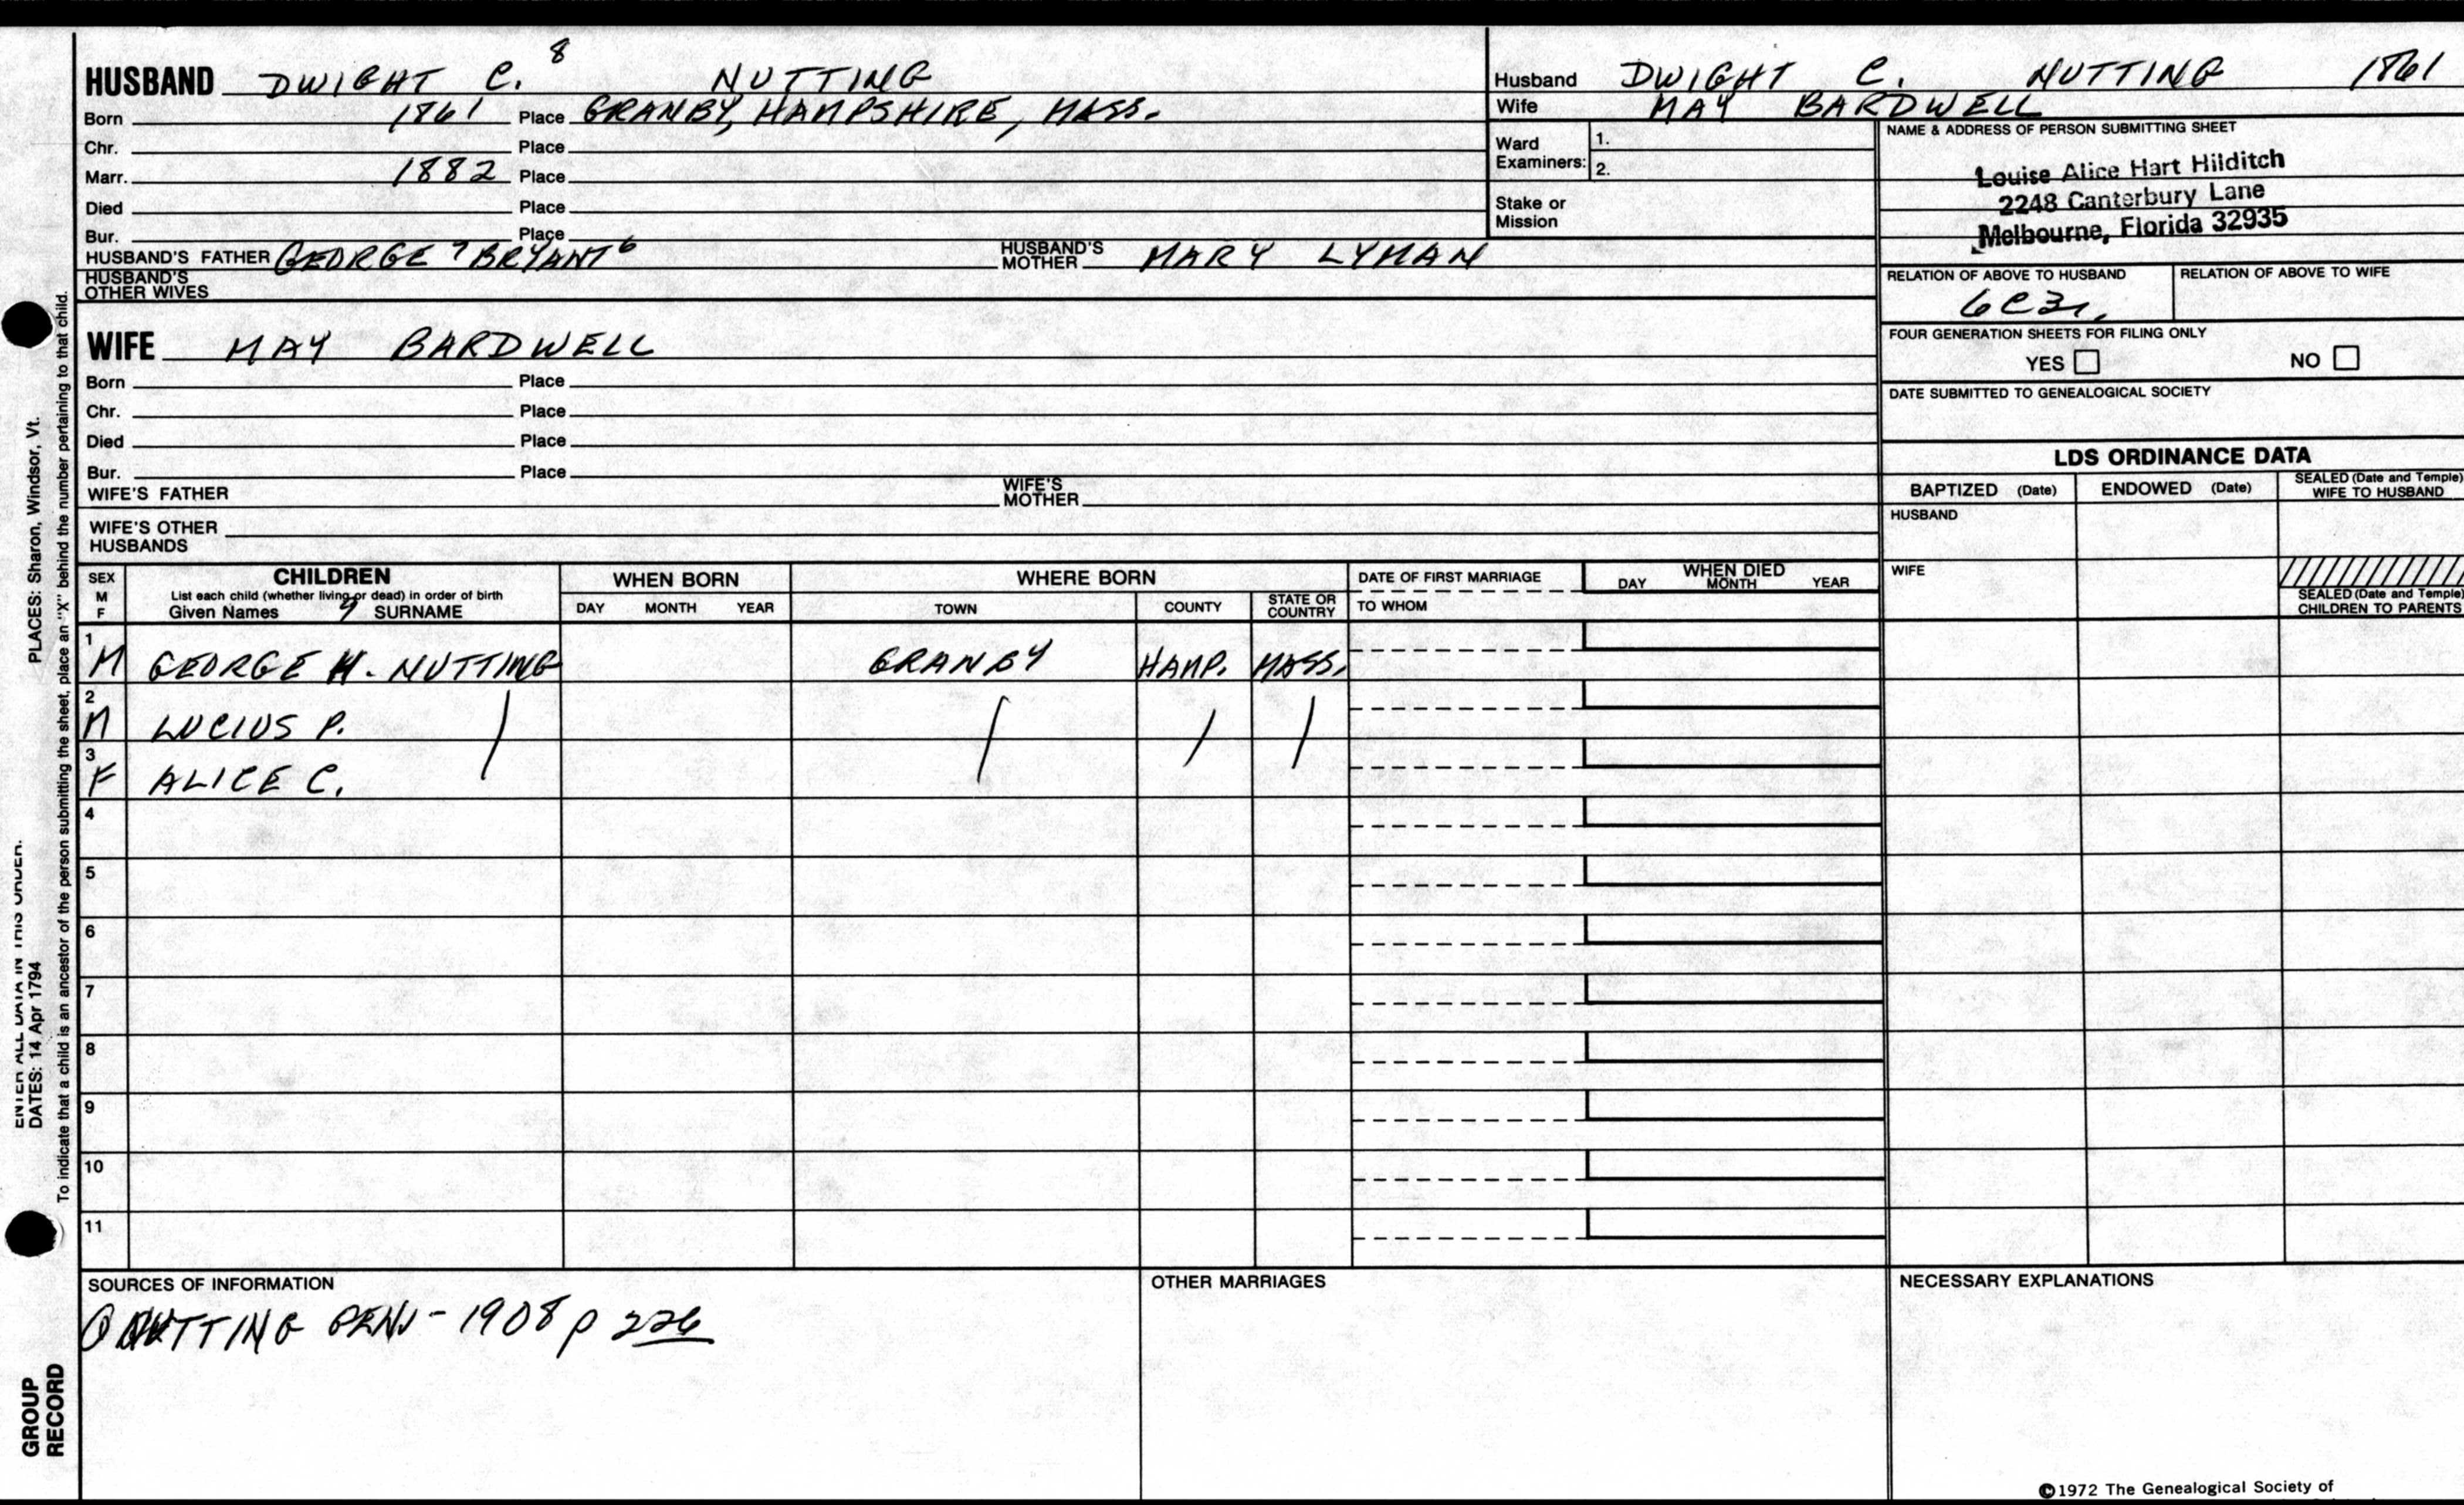 HUSBAND DWIGHT C. 8 NUTTING
Born 1861 Place GRANBY, HAMPSHIRE, MASS.
Chr. Place
Marr. 1882 Place
Died Place
Bur. Place
HUSBAND'S FATHER GEORGE 7 BRYANT 6 HUSBAND'S MOTHER MARY LYMAN
HUSBAND'S OTHER WIVES
Husband DWIGHT C. NUTTING 1861
Wife MAY BARDWELL
Ward Examiners: 1. 2.
Stake or Mission
NAME & ADDRESS OF PERSON SUBMITTING SHEET
Louise Alice Hart Hilditch
2248 Canterbury Lane
Melbourne, Florida 32935
RELATION OF ABOVE TO HUSBAND RELATION OF ABOVE TO WIFE
6C3r.
FOUR GENERATION SHEETS FOR FILING ONLY
YES NO
DATE SUBMITTED TO GENEALOGICAL SOCIETY
WIFE MAY BARDWELL
Born Place
Chr. Place
Died Place
Bur. Place
WIFE'S FATHER WIFE'S MOTHER
WIFE'S OTHER HUSBANDS
LDS ORDINANCE DATA
BAPTIZED (Date) ENDOWED (Date) SEALED (Date and Temple) WIFE TO HUSBAND
HUSBAND
WIFE
SEALED (Date and Temple) CHILDREN TO PARENTS
SEX M F CHILDREN WHEN BORN WHERE BORN DATE OF FIRST MARRIAGE WHEN DIED
List each child (whether living or dead) in order of birth
Given Names 9 SURNAME DAY MONTH YEAR TOWN COUNTY STATE OR COUNTRY TO WHOM DAY MONTH YEAR
1 M GEORGE H. NUTTING GRANBY HAMP. MASS.
2 M LUCIUS P.
3 F ALICE C.
4
5
6
7
8
9
10
11
SOURCES OF INFORMATION
NUTTING GEN - 1908 p 226
OTHER MARRIAGES
NECESSARY EXPLANATIONS
©1972 The Genealogical Society of
ENTER ALL DATA IN THIS ORDER.
DATES: 14 Apr 1794
PLACES: Sharon, Windsor, Vt.
To indicate that a child is an ancestor of the person submitting the sheet, place an "X" behind the number pertaining to that child.
GROUP RECORD